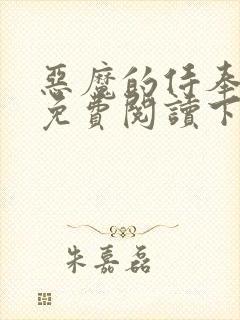 惡魔的侍奉
免費閱讀下
朱嘉磊